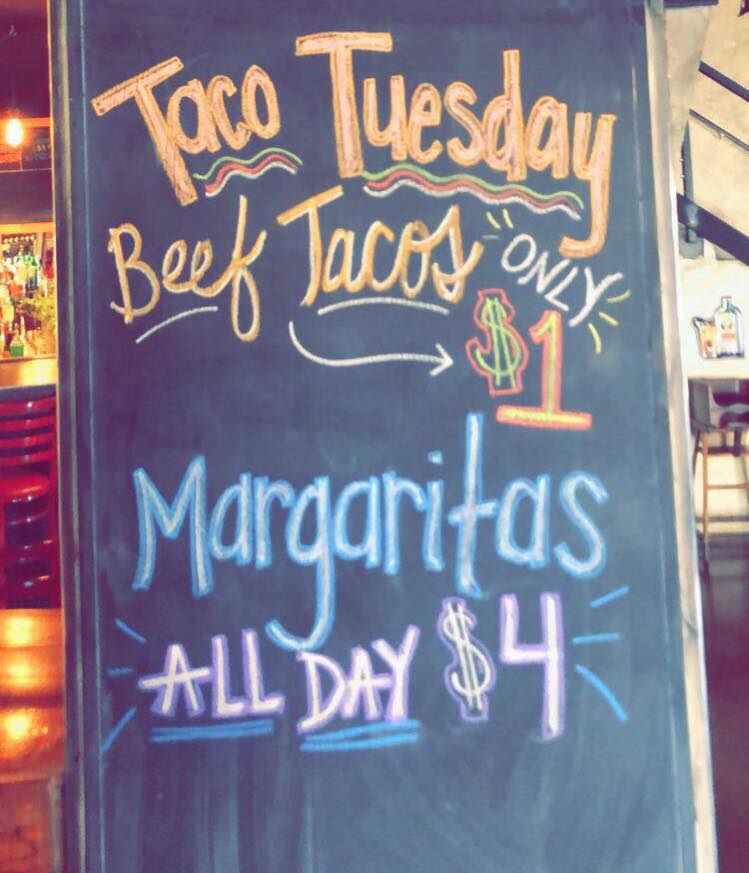 Taco Tuesday
Beef Tacos ONLY
$1
Margaritas
ALL DAY $4